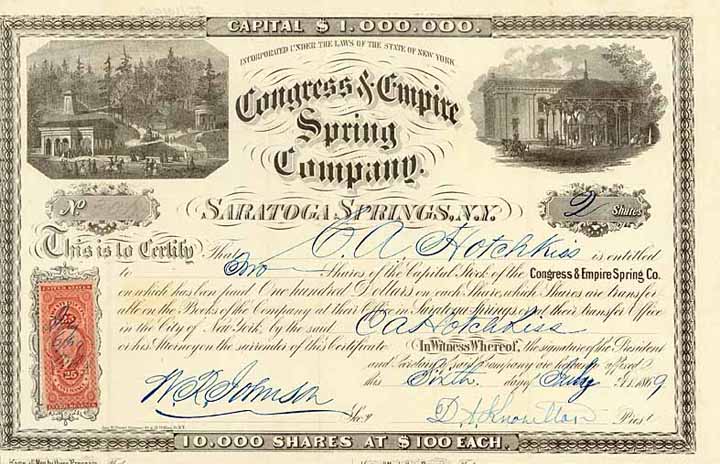 CAPITAL $1,000,000.
INCORPORATED UNDER THE LAWS OF THE STATE OF NEW YORK
Congress & Empire
Spring
Company.
SARATOGA SPRINGS, N.Y.
No
2 Shares
This is to Certify That C. A. Hotchkiss is entitled
to Two Shares of the Capital Stock of the Congress & Empire Spring Co.
on which has been paid One hundred Dollars on each Share, which Shares are transfer-
able on the Books of the Company at their Office in Saratoga Springs, or at their transfer Office
in the City of New York, by the said C A Hotchkiss
or his Attorney on the surrender of this Certificate. In Witness Whereof, the signatures of the President
and Secretary of said Company are hereunto affixed
this Sixth day of July A.D. 1869
W. H. Johnson Sec'y
D. A. Knowlton Prest
25
10,000 SHARES AT $100 EACH.